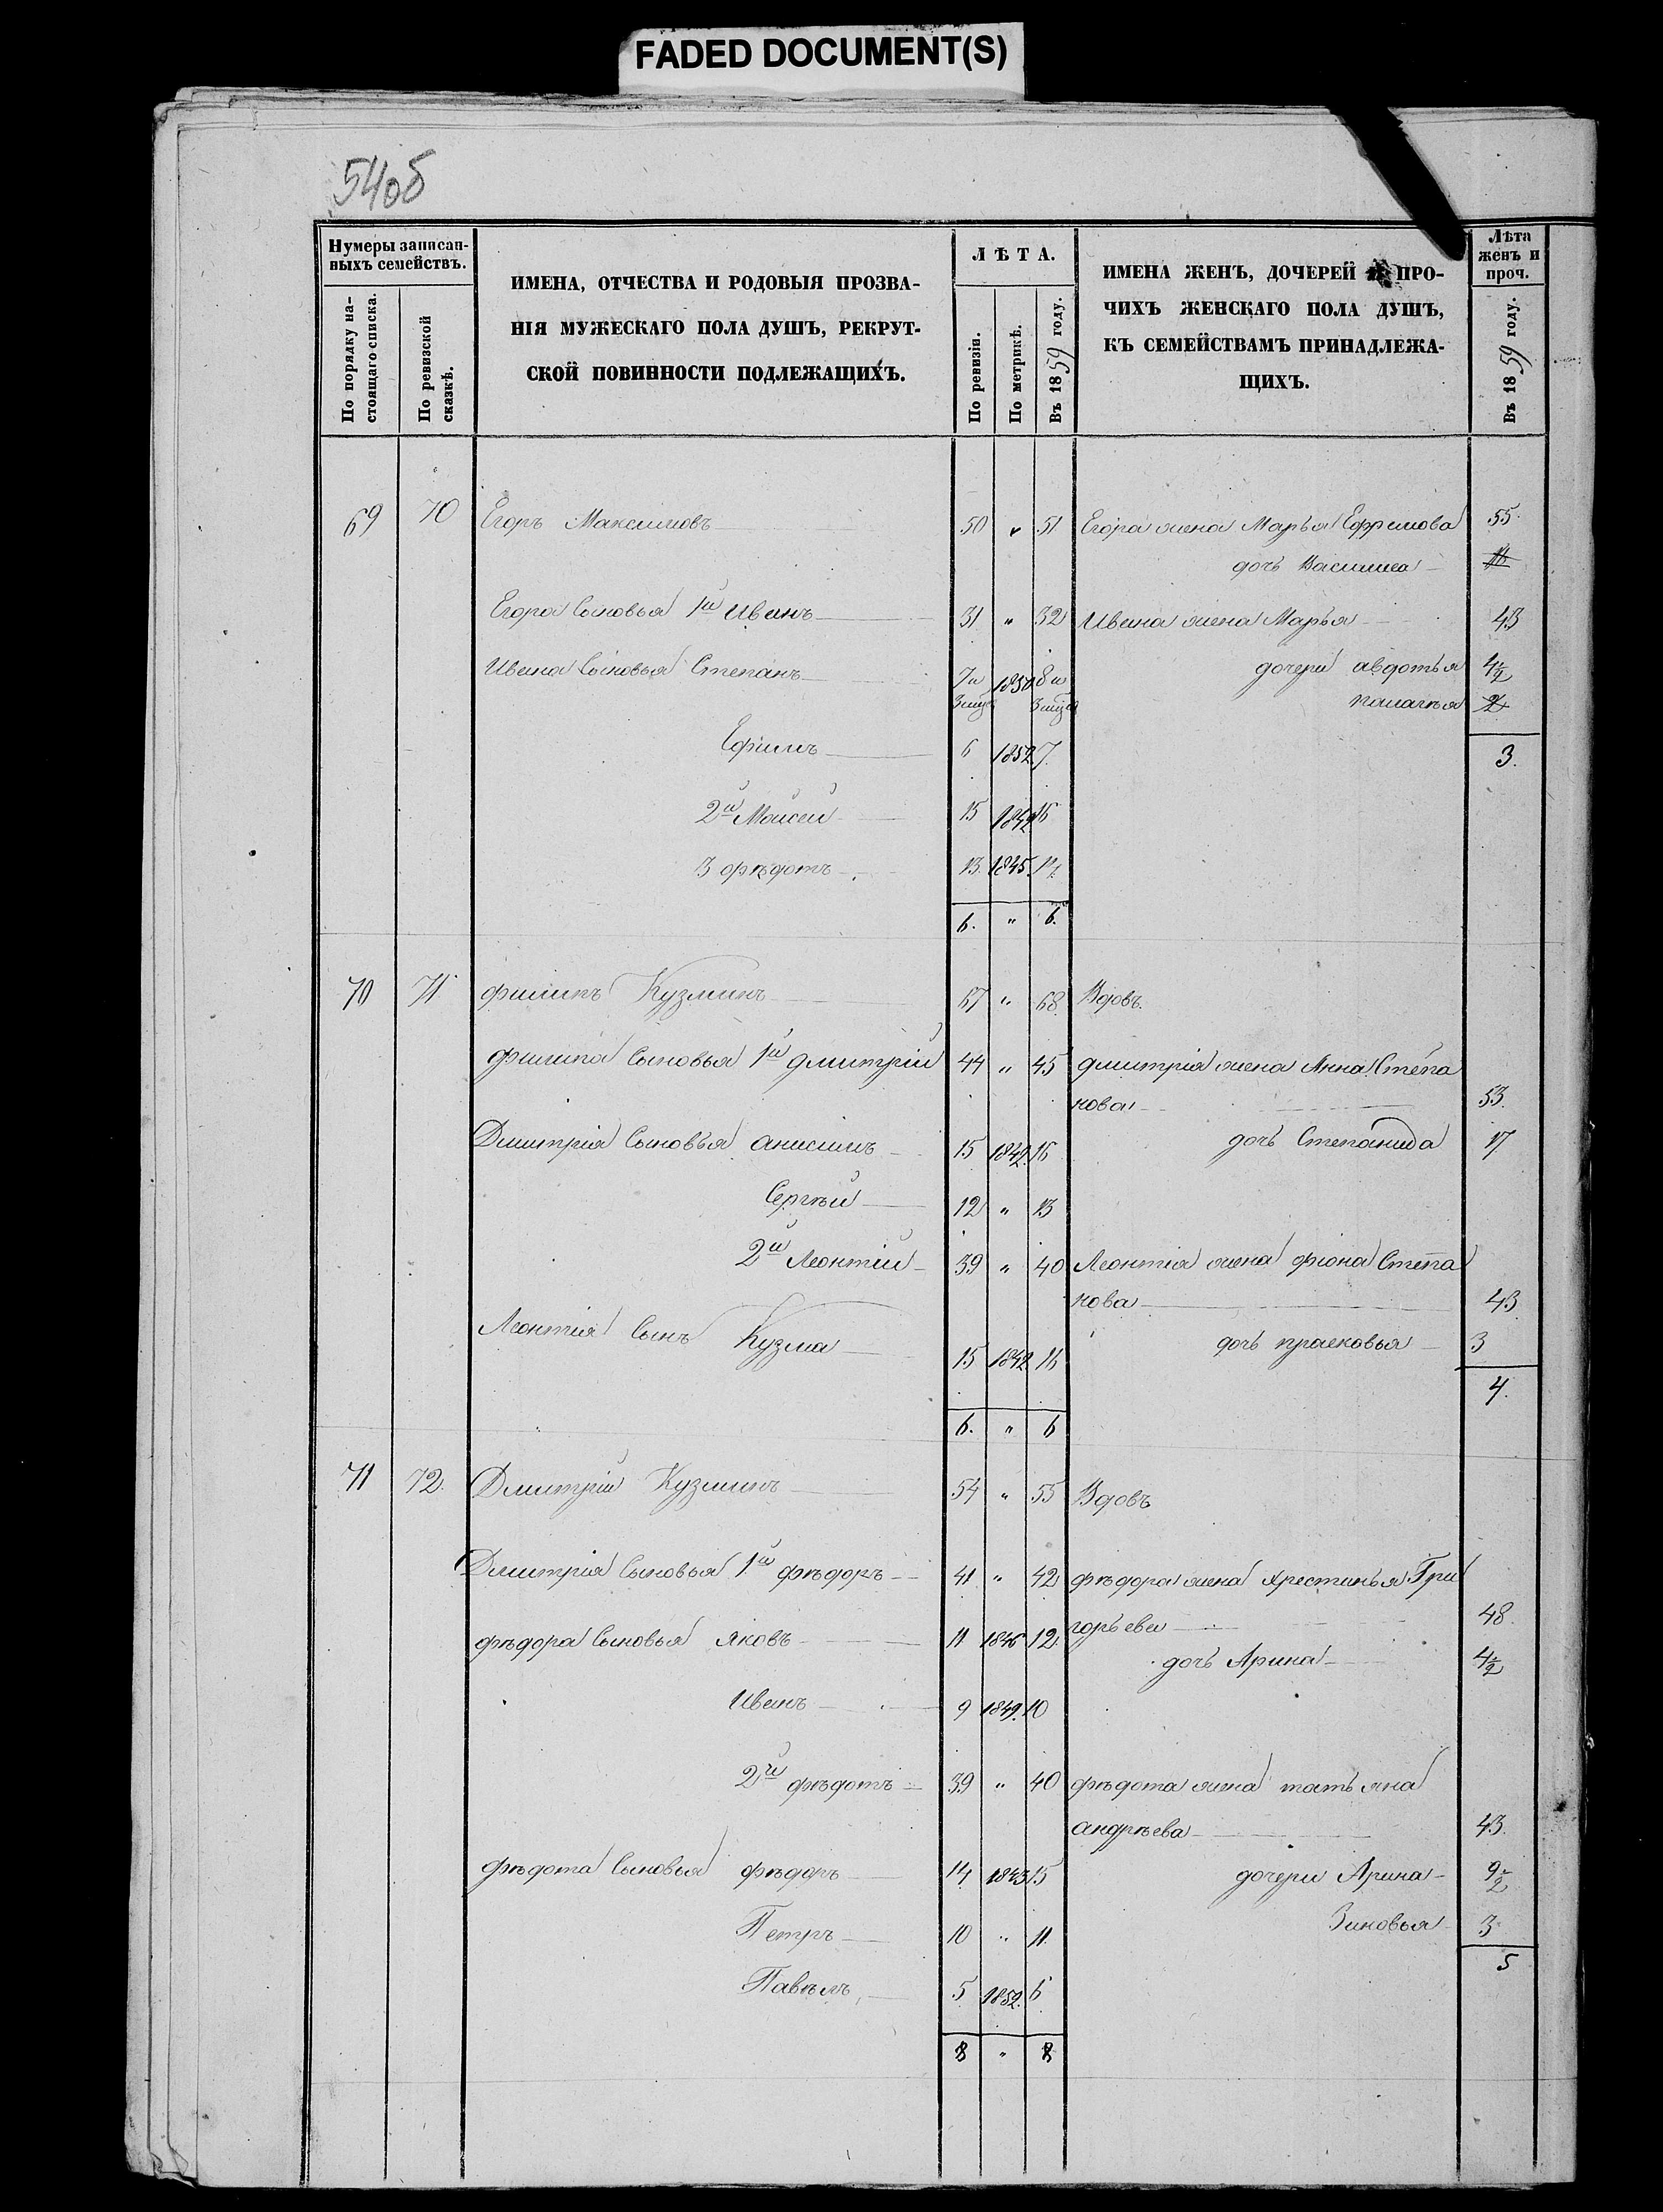 FADED DOCUMENT(S)
54об
Нумеры записан-
ныхъ семействъ.
По порядку на-
стоящаго списка.
По ревизской
сказкѣ.
ИМЕНА, ОТЧЕСТВА И РОДОВЫЯ ПРОЗВА-
НІЯ МУЖЕСКАГО ПОЛА ДУШЪ, РЕКРУТ-
СКОЙ ПОВИННОСТИ ПОДЛЕЖАЩИХЪ.
ЛѢТА.
По ревизіи.
По метрикѣ.
Въ 1859 году.
ИМЕНА ЖЕНЪ, ДОЧЕРЕЙ И ПРО-
ЧИХЪ ЖЕНСКАГО ПОЛА ДУШЪ,
КЪ СЕМЕЙСТВАМЪ ПРИНАДЛЕЖА-
ЩИХЪ.
Лѣта
женъ и
проч.
Въ 1859 году.
69 70 Егоръ Максимовъ 50 " 51 Егора жена Марья Ефримова 55
дочь Василиса
Егора Сыновья 1й Иванъ 31 " 32 Ивана жена Марья 43
Ивана Сыновья Степанъ 7и 1850 8и дочери авдотья 4½
3 мцъ 3 мцъ палагѣя 2
Ефимъ 6 1852 7 3.
2й Моисей 15 1842 16
3 фѣдотъ 13 1845 14
6. " 6.
70 71 филипъ Кузминъ 67 " 68 Вдовъ
филипа Сыновья 1й дмитрій 44 " 45 дмитрія жена Анна Степа
нова 53
Дмитрія Сыновья анисимъ 15 1842 16 дочь Степанида 17
Сергѣй 12 " 13
2й Леонтій 39 " 40 Леонтія жена фіона Степа
нова 43
Леонтія Сынъ Кузма 15 1842 16 дочь прасковья 3
4.
6. " 6
71 72. Дмитрій Кузминъ 54 " 55 Вдовъ
Дмитрія Сыновья 1й фѣдоръ 41 " 42 фѣдора жена Хрестинья Гри
горьева 48
фѣдора Сыновья яковъ 11 1846 12
дочь Арина 4½
Иванъ 9 1849 10
2й фѣдотъ 39 " 40 фѣдота жена татьяна
андрѣева 43
фѣдота Сыновья фѣдоръ 14 1843 15 дочери Арина 9½
Петръ 10 " 11 Зиновья 3
5
Павѣлъ 5 1852 6
8 " 8